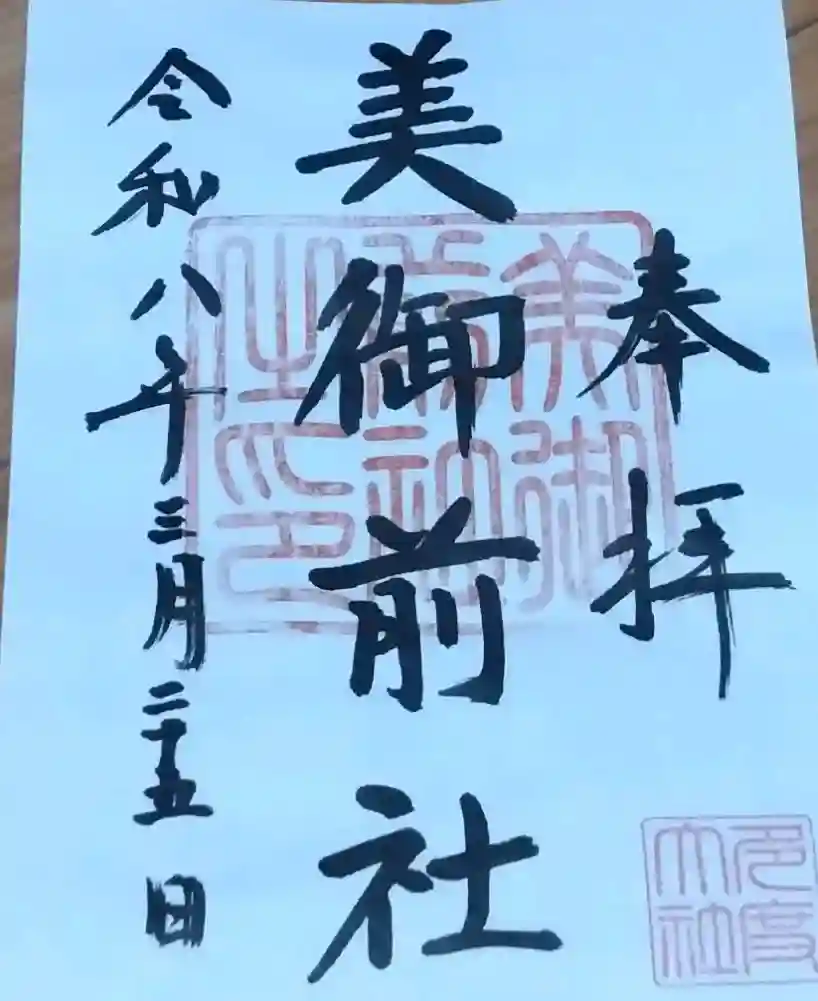 奉拝
美御前社
令和八年三月二十五日
美御前社之印
多度大社